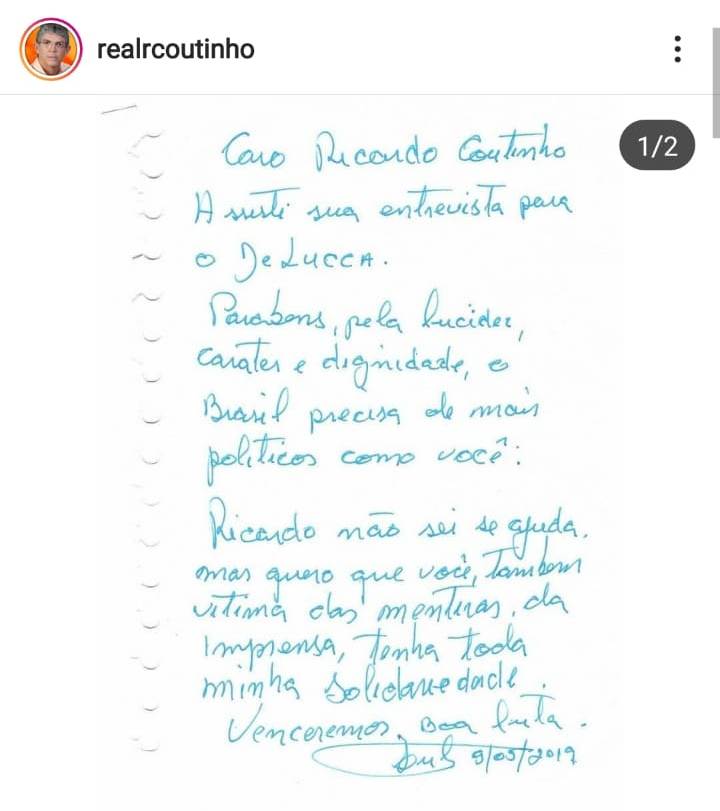 realrcoutinho
1/2
Caro Ricardo Coutinho
Assisti sua entrevista para
o De Lucca.
Parabens, pela lucidez,
carater e dignidade, o
Brasil precisa de mais
politicos como você:
Ricardo não sei se ajuda.
mas quero que você, Tambem
vitima das mentiras, da
Imprensa, Tenha toda
minha solidariedade.
Venceremos, Boa luta.
9/05/2019